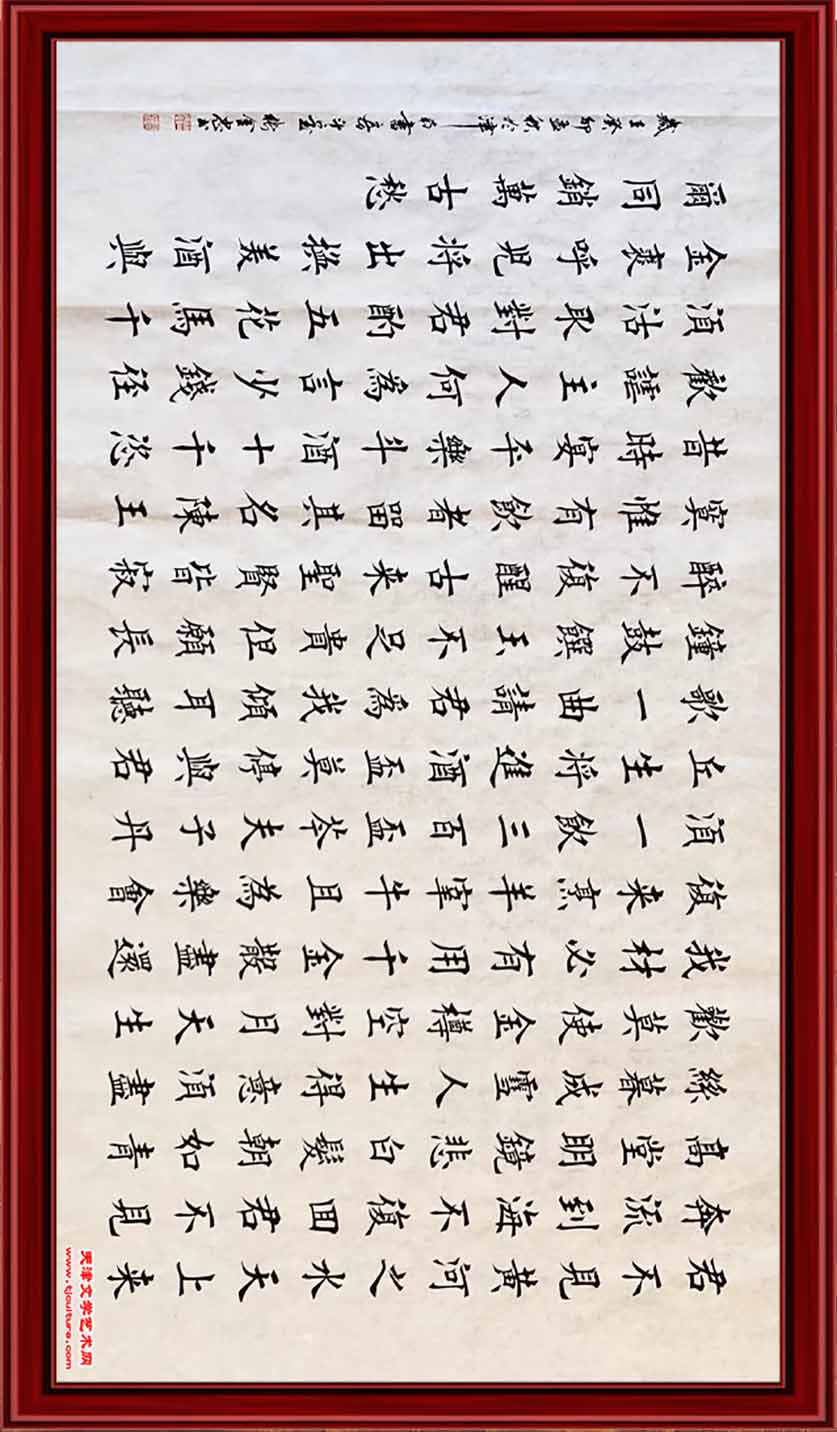 君不見黃河之水天上来
奔流到海不復囬君不見
高堂明鏡悲白髮朝如青
絲暮成雪人生得意須盡
歡莫使金樽空對月天生
我材必有用千金散盡還
復来烹羊宰牛且為樂會
須一飲三百盃岑夫子丹
丘生將進酒盃莫停與君
歌一曲請君為我傾耳聽
鐘鼓饌玉不足貴但願長
醉不復醒古来聖賢皆寂
寞惟有飲者留其名陳王
昔時宴平樂斗酒十千恣
歡謔主人何為言少錢徑
須沽取對君酌五花馬千
金裘呼兒將出換美酒與
爾同銷萬古愁
歲在癸卯孟秋於津
天津文学艺术网
www.tjculture.com